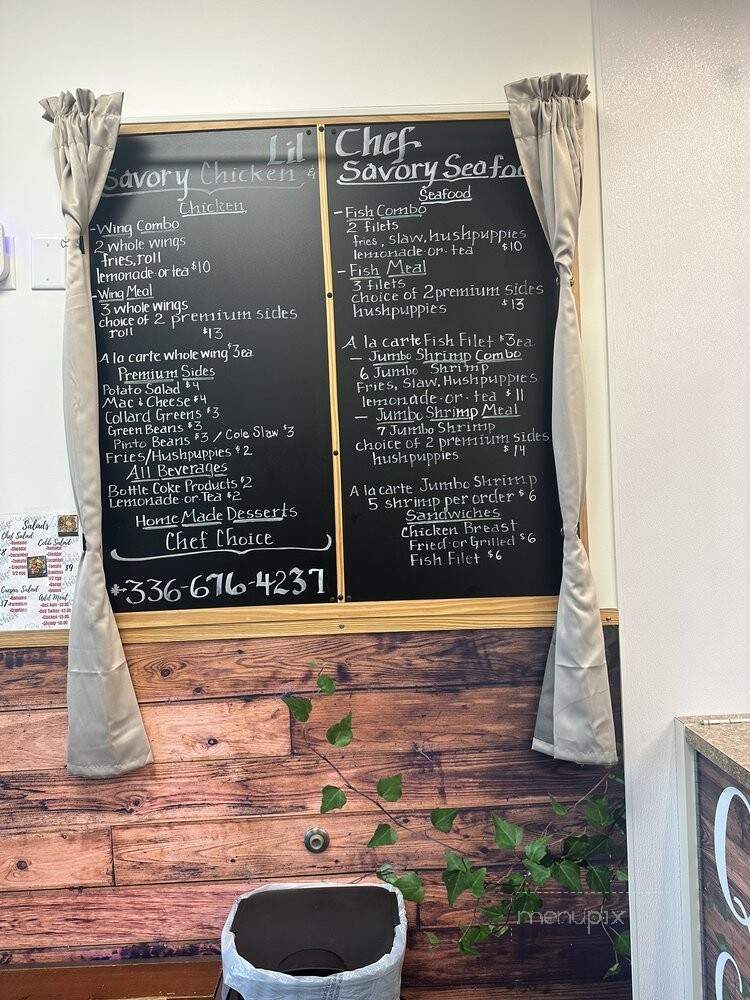 Lil' Chef
Savory Chicken &
Chicken
-Wing Combo
2 whole wings
fries, roll
lemonade or tea $10
-Wing Meal
3 whole wings
choice of 2 premium sides
roll $13
A la carte whole wing $3 ea.
Premium Sides
Potato Salad $4
Mac & Cheese $4
Collard Greens $3
Green Beans $3
Pinto Beans $3 / Cole Slaw $3
Fries/Hushpuppies $2
All Beverages
Bottle Coke Products $2
Lemonade or Tea $2
Home Made Desserts
Chef Choice
336-676-4237
Savory Seafoo
Seafood
-Fish Combo
2 filets
fries, slaw, hushpuppies
lemonade or tea $10
-Fish Meal
3 filets
choice of 2 premium sides
hushpuppies $13
A la carte Fish Filet $3 ea.
- Jumbo Shrimp Combo
6 Jumbo Shrimp
Fries, Slaw, Hushpuppies
lemonade or tea $11
- Jumbo Shrimp Meal
7 Jumbo Shrimp
choice of 2 premium sides
hushpuppies $14
A la carte Jumbo Shrimp
5 shrimp per order $6
Sandwiches
Chicken Breast
Fried or Grilled $6
Fish Filet $6
Salads
Chef Salad
Cobb Salad
$9
Caesar Salad
Add Meat
menupix